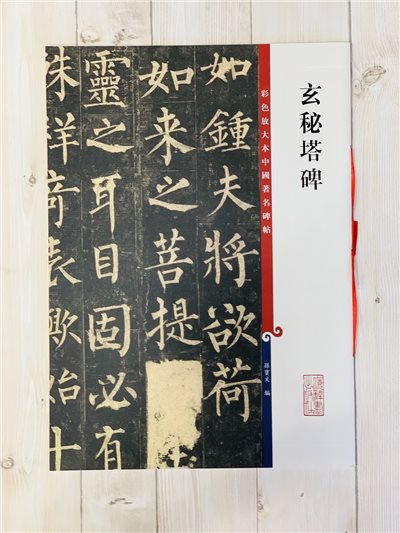 玄秘塔碑
彩色放大本中國著名碑帖
孫寶文 編
如鍾夫將欲荷
如来之菩提
靈之耳目固必有
殊祥奇表歟始十